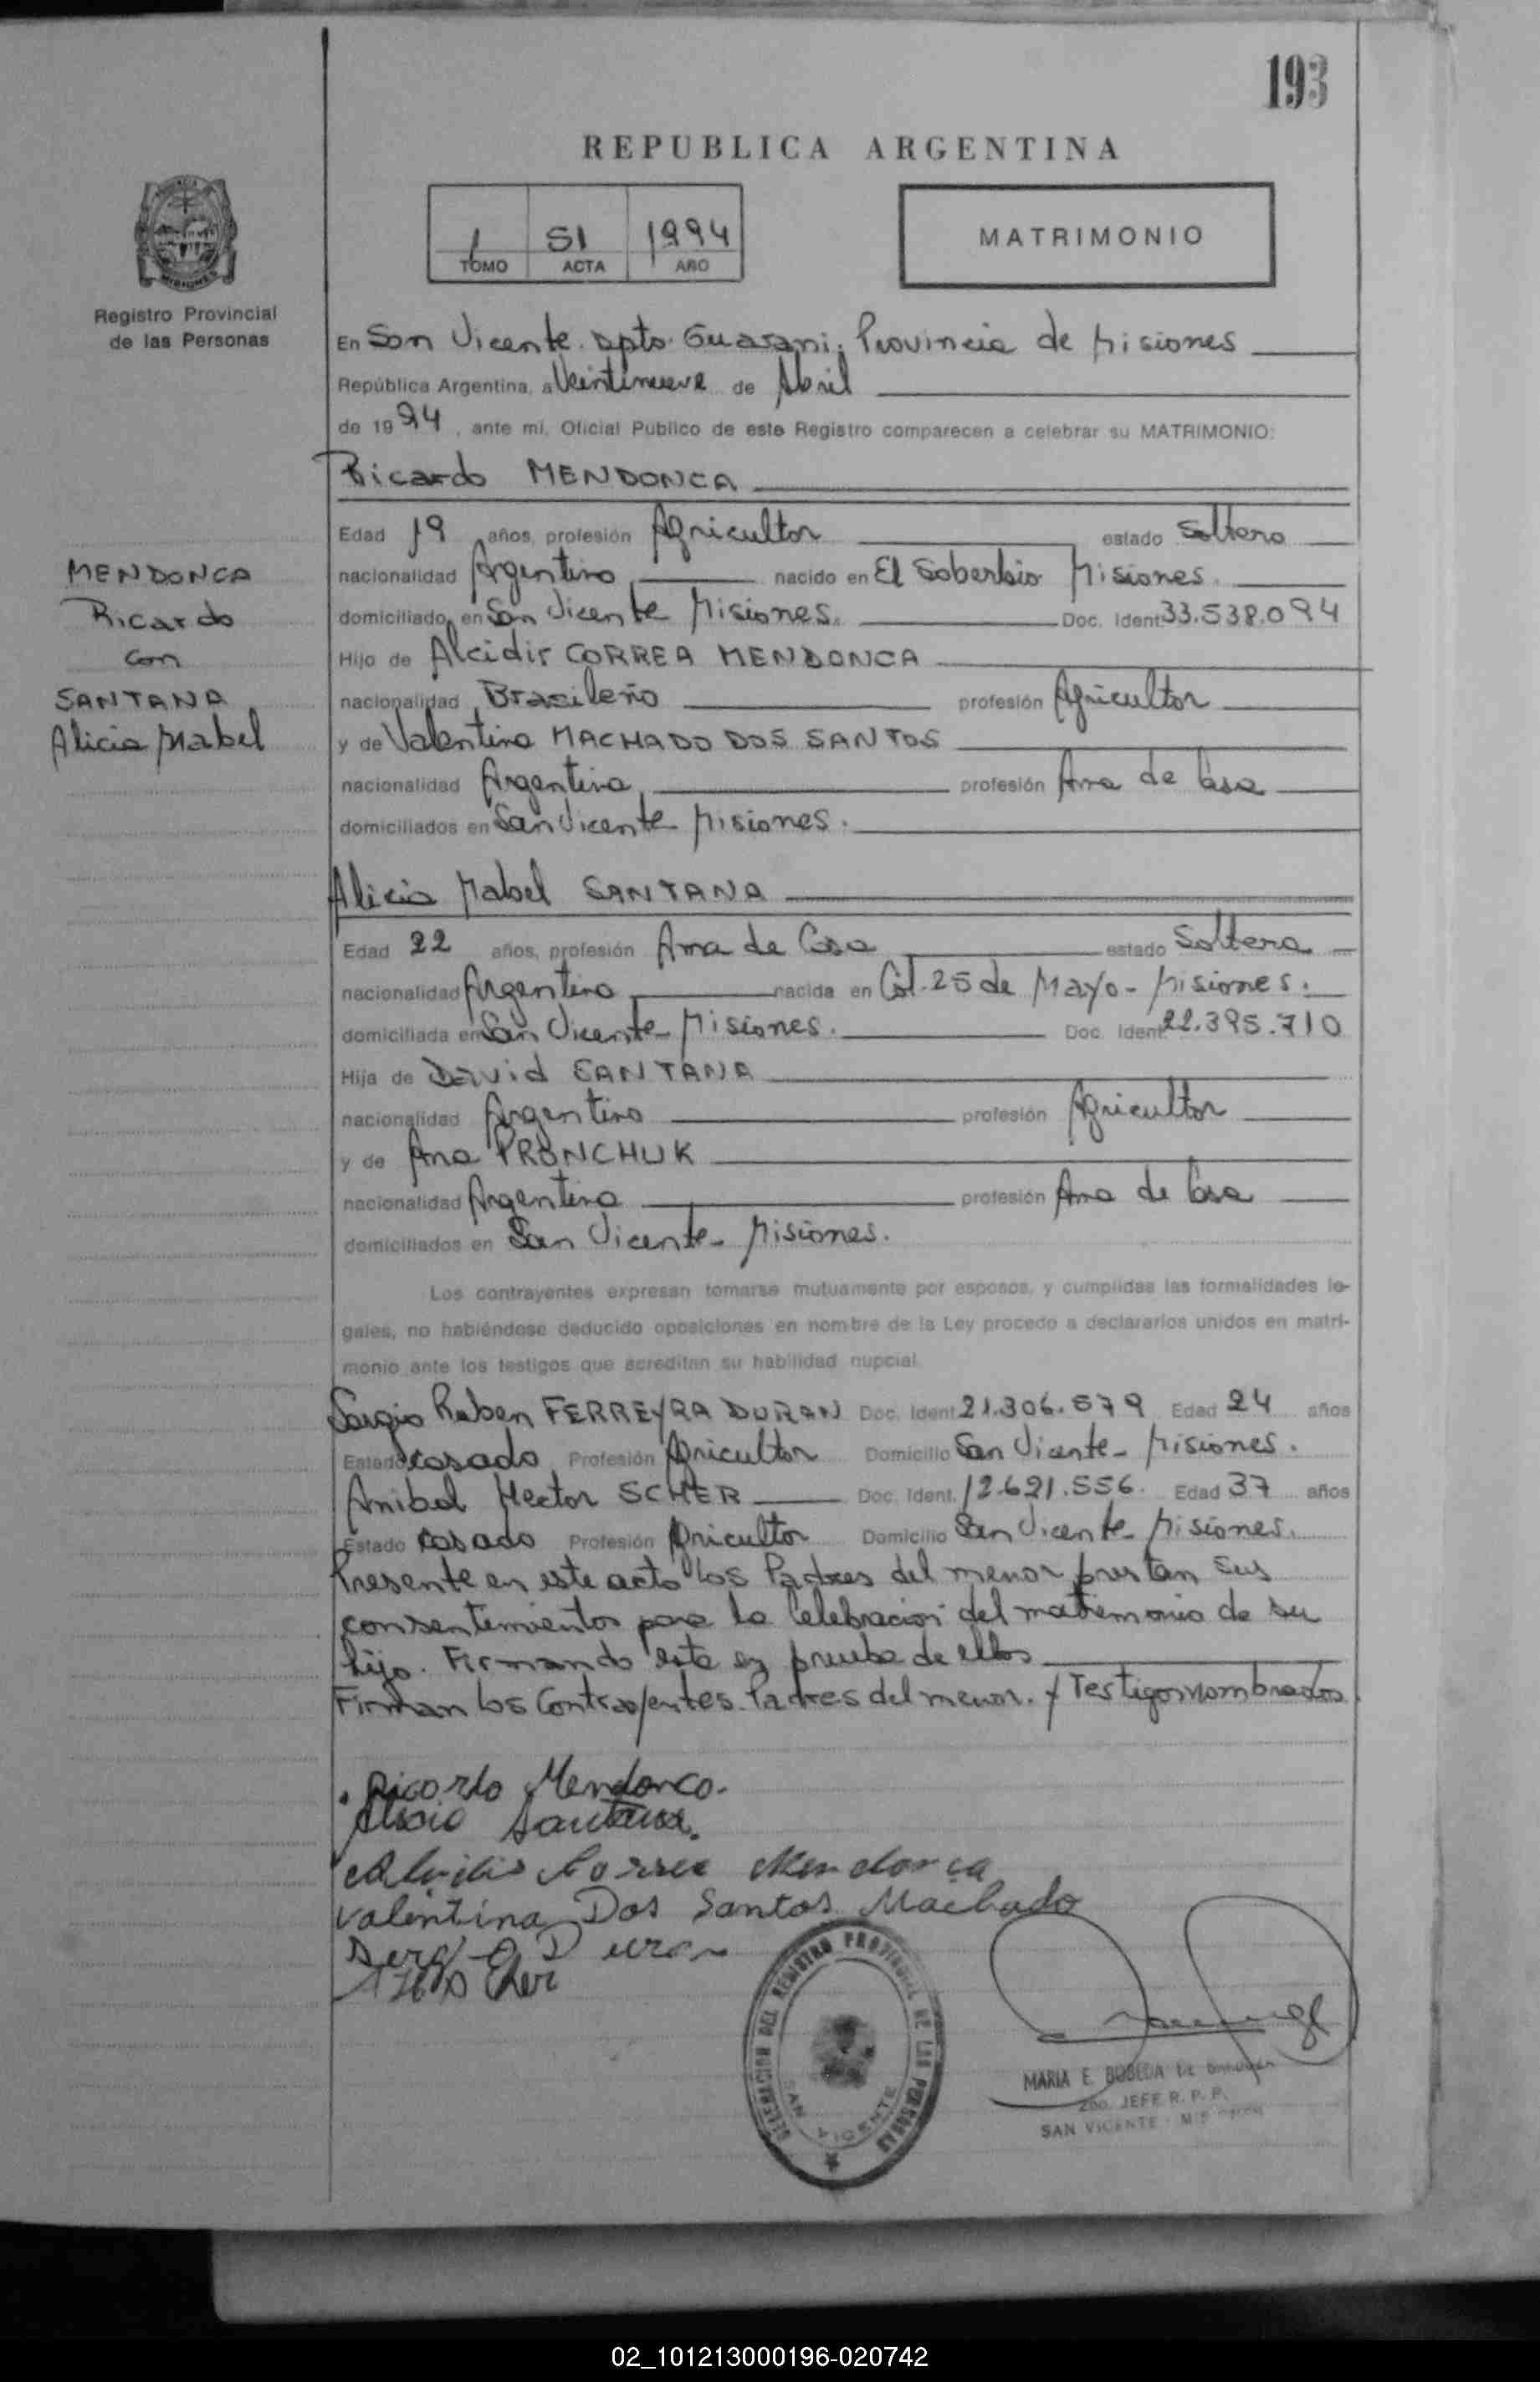 193
REPUBLICA ARGENTINA
1 51 1994
TOMO ACTA AÑO
MATRIMONIO
Registro Provincial
de las Personas
MENDONCA
Ricardo
con
SANTANA
Alicia Mabel
En San Vicente. Dpto. Guarani. Provincia de Misiones
República Argentina, a Veintinueve de Abril
de 1994, ante mí, Oficial Publico de este Registro comparecen a celebrar su MATRIMONIO:
Ricardo MENDONCA
Edad 19 años, profesión Agricultor estado Soltero
nacionalidad Argentino nacido en El Soberbio Misiones.
domiciliado en San Vicente Misiones. Doc. Ident 33.538.094
Hijo de Alcidir CORREA MENDONCA
nacionalidad Brasileño profesión Agricultor
y de Valentina MACHADO DOS SANTOS
nacionalidad Argentina profesión Ama de Casa
domiciliados en San Vicente Misiones.
Alicia Mabel SANTANA
Edad 22 años, profesión Ama de Casa estado Soltera
nacionalidad Argentina nacida en Col. 25 de Mayo - Misiones.
domiciliada en San Vicente Misiones. Doc. Ident 22.395.710
Hija de David SANTANA
nacionalidad Argentino profesión Agricultor
y de Ana PRONCHUK
nacionalidad Argentina profesión Ama de Casa
domiciliados en San Vicente - Misiones.
Los contrayentes expresan tomarse mutuamente por esposos, y cumplidas las formalidades le-
gales, no habiéndose deducido oposiciones en nombre de la Ley procedo a declararlos unidos en matri-
monio ante los testigos que acreditan su habilidad nupcial
Sergio Ruben FERREYRA DURAN Doc. Ident 21.306.579 Edad 24 años
Estado casado Profesión Agricultor Domicilio San Vicente - Misiones.
Anibal Hector SCHER Doc. Ident. 12.621.556. Edad 37 años
Estado casado Profesión Agricultor Domicilio San Vicente - Misiones.
Presente en este acto los Padres del menor prestan sus
consentemientos para la Celebracion del matrimonio de su
hijo. Firmando este en prueba de ellos
Firman los Contrayentes. Padres del menor. y Testigos nombrados.
Ricardo Mendonca.
Alicia Santana.
Alcidir Correa Mendonça
Valentina Dos Santos Machado
Sergio Duran
DELEGACION DEL REGISTRO PROVINCIAL DE LAS PERSONAS
SAN VICENTE
MARIA E. BOBEDA DE
2do. JEFE R. P. P.
SAN VICENTE - MISIONES
02_101213000196-020742